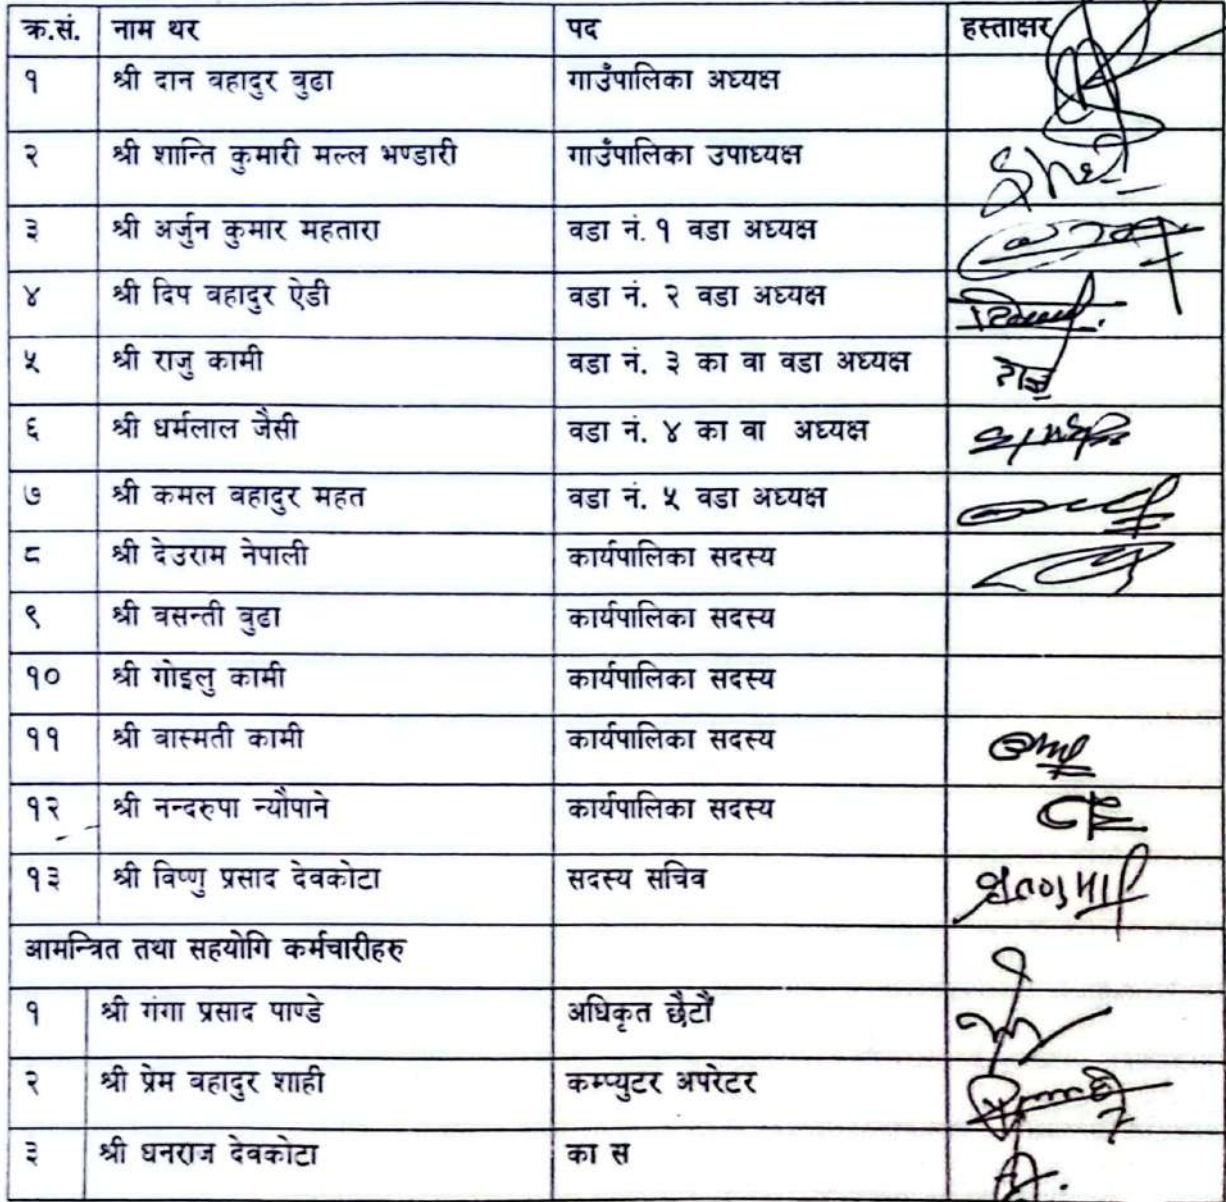 क्र.सं. नाम थर पद हस्ताक्षर
१ श्री दान वहादुर वुढा गाउँपालिका अध्यक्ष
२ श्री शान्ति कुमारी मल्ल भण्डारी गाउँपालिका उपाध्यक्ष
३ श्री अर्जुन कुमार महतारा वडा नं. १ वडा अध्यक्ष
४ श्री दिप वहादुर ऐडी वडा नं. २ वडा अध्यक्ष
५ श्री राजु कामी वडा नं. ३ का वा वडा अध्यक्ष राजु
६ श्री धर्मलाल जैसी वडा नं. ४ का वा अध्यक्ष
७ श्री कमल वहादुर महत वडा नं. ५ वडा अध्यक्ष
८ श्री देउराम नेपाली कार्यपालिका सदस्य
९ श्री वसन्ती वुढा कार्यपालिका सदस्य
१० श्री गोइलु कामी कार्यपालिका सदस्य
११ श्री वास्मती कामी कार्यपालिका सदस्य
१२ श्री नन्दरुपा न्यौपाने कार्यपालिका सदस्य
१३ श्री विष्णु प्रसाद देवकोटा सदस्य सचिव
आमन्त्रित तथा सहयोगि कर्मचारीहरु
१ श्री गंगा प्रसाद पाण्डे अधिकृत छैटौं
२ श्री प्रेम वहादुर शाही कम्प्युटर अपरेटर
३ श्री धनराज देवकोटा का स